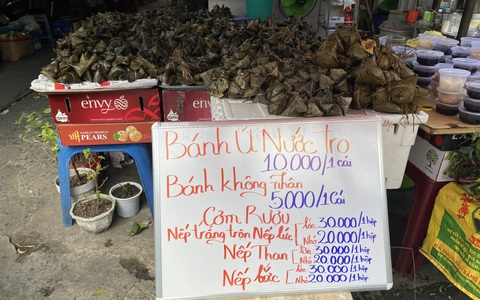 envy
PEARS
Bánh Ú Nước Tro
10.000/1 cái
Bánh không nhân
5000/1 Cái
Cơm Rượu
Nếp trắng trộn Nếp lức [ lớn 30.000/1 hộp
Nhỏ 20.000/1 hộp
Nếp Than [ lớn 30.000/1 hộp
Nhỏ 20.000/1 hộp
Nếp lức [ lớn 30.000/1 hộp
Nhỏ 20.000/1 hộp